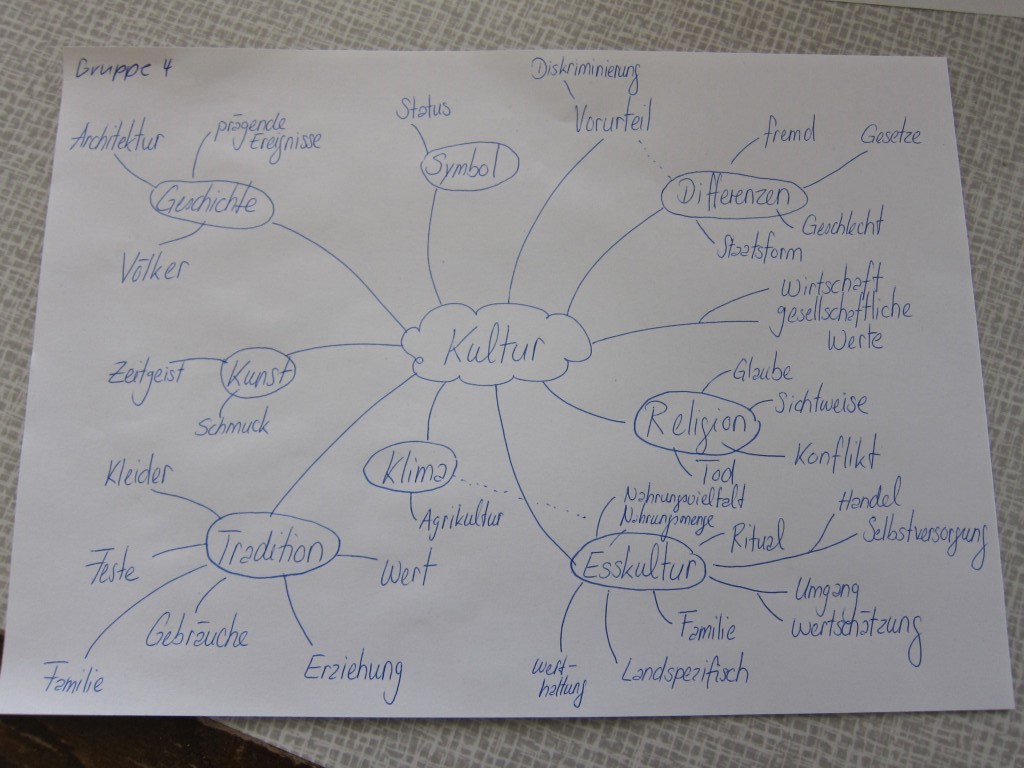 Gruppe 4
Diskriminierung
Vorurteil
Status
Symbol
Architektur
prägende
Ereignisse
Geschichte
Völker
fremd
Gesetze
Differenzen
Geschlecht
Staatsform
Wirtschaft
gesellschaftliche
Werte
Kultur
Zeitgeist
Kunst
Schmuck
Glaube
Sichtweise
Religion
Konflikt
Tod
Klima
Agrikultur
Kleider
Tradition
Feste
Wert
Gebräuche
Familie
Erziehung
Nahrungsvielfalt
Nahrungsmenge
Ritual
Handel
Selbstversorgung
Esskultur
Umgang
Wertschätzung
Familie
Landspezifisch
Wert-
haltung